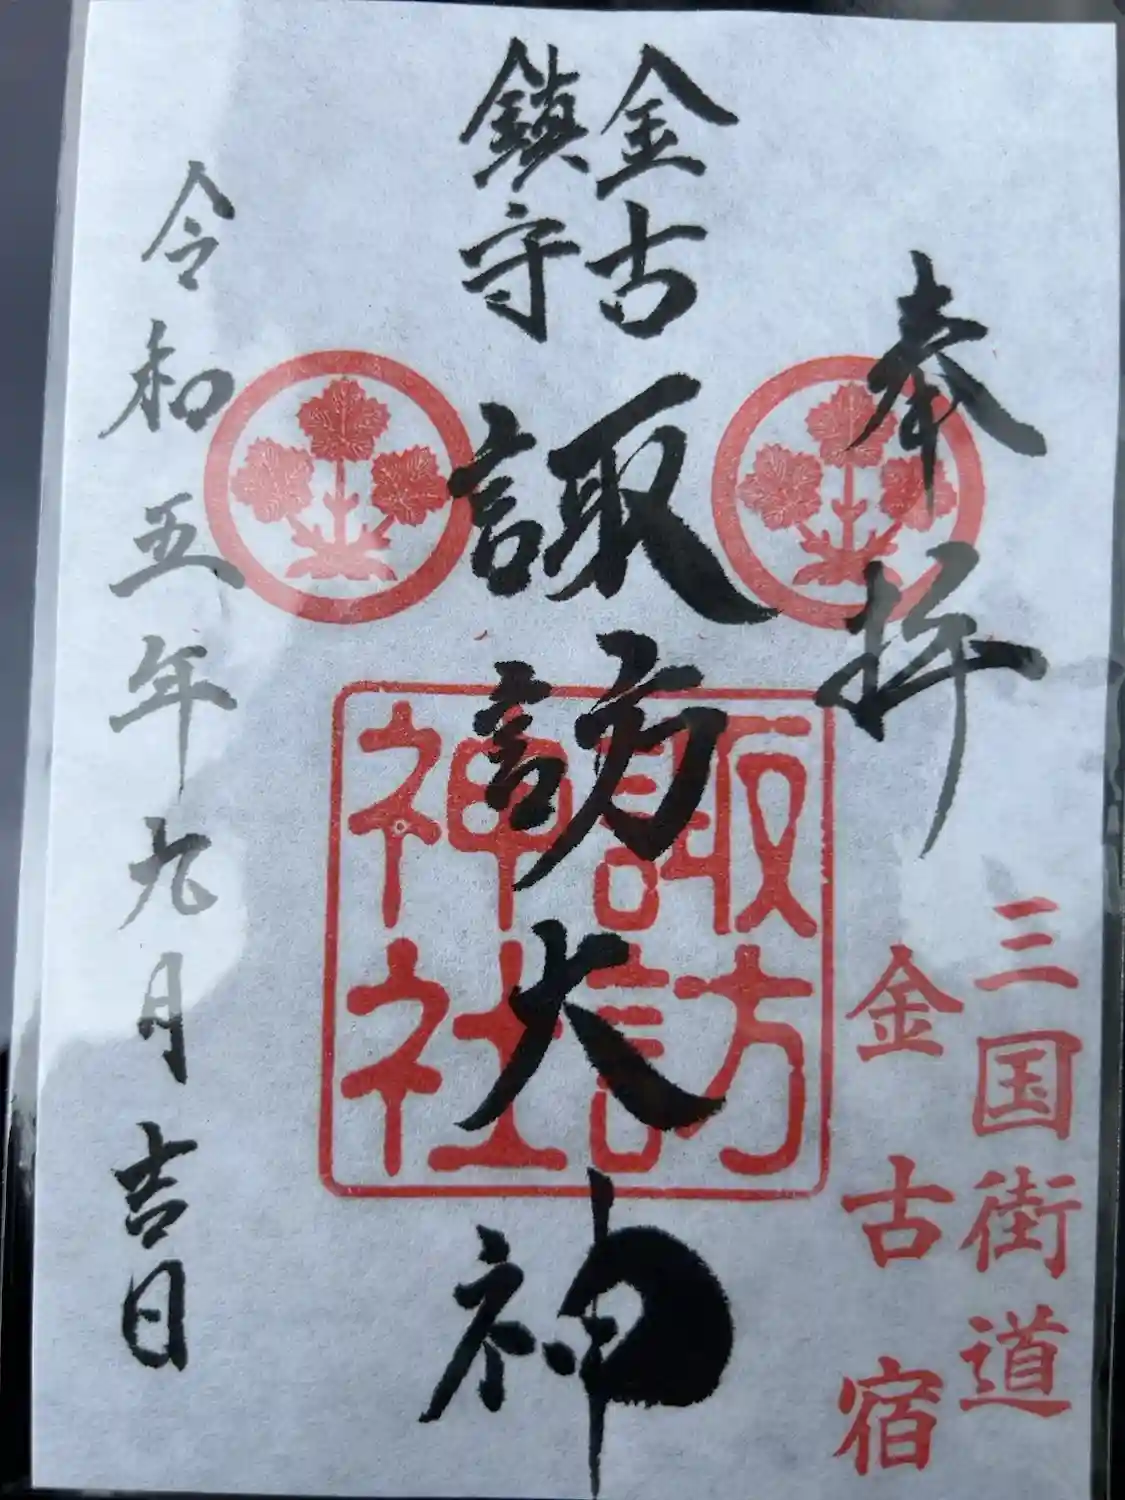 奉拝
三国街道
金古宿
金古
鎮守
諏訪大神
諏訪
神社
令和五年九月吉日